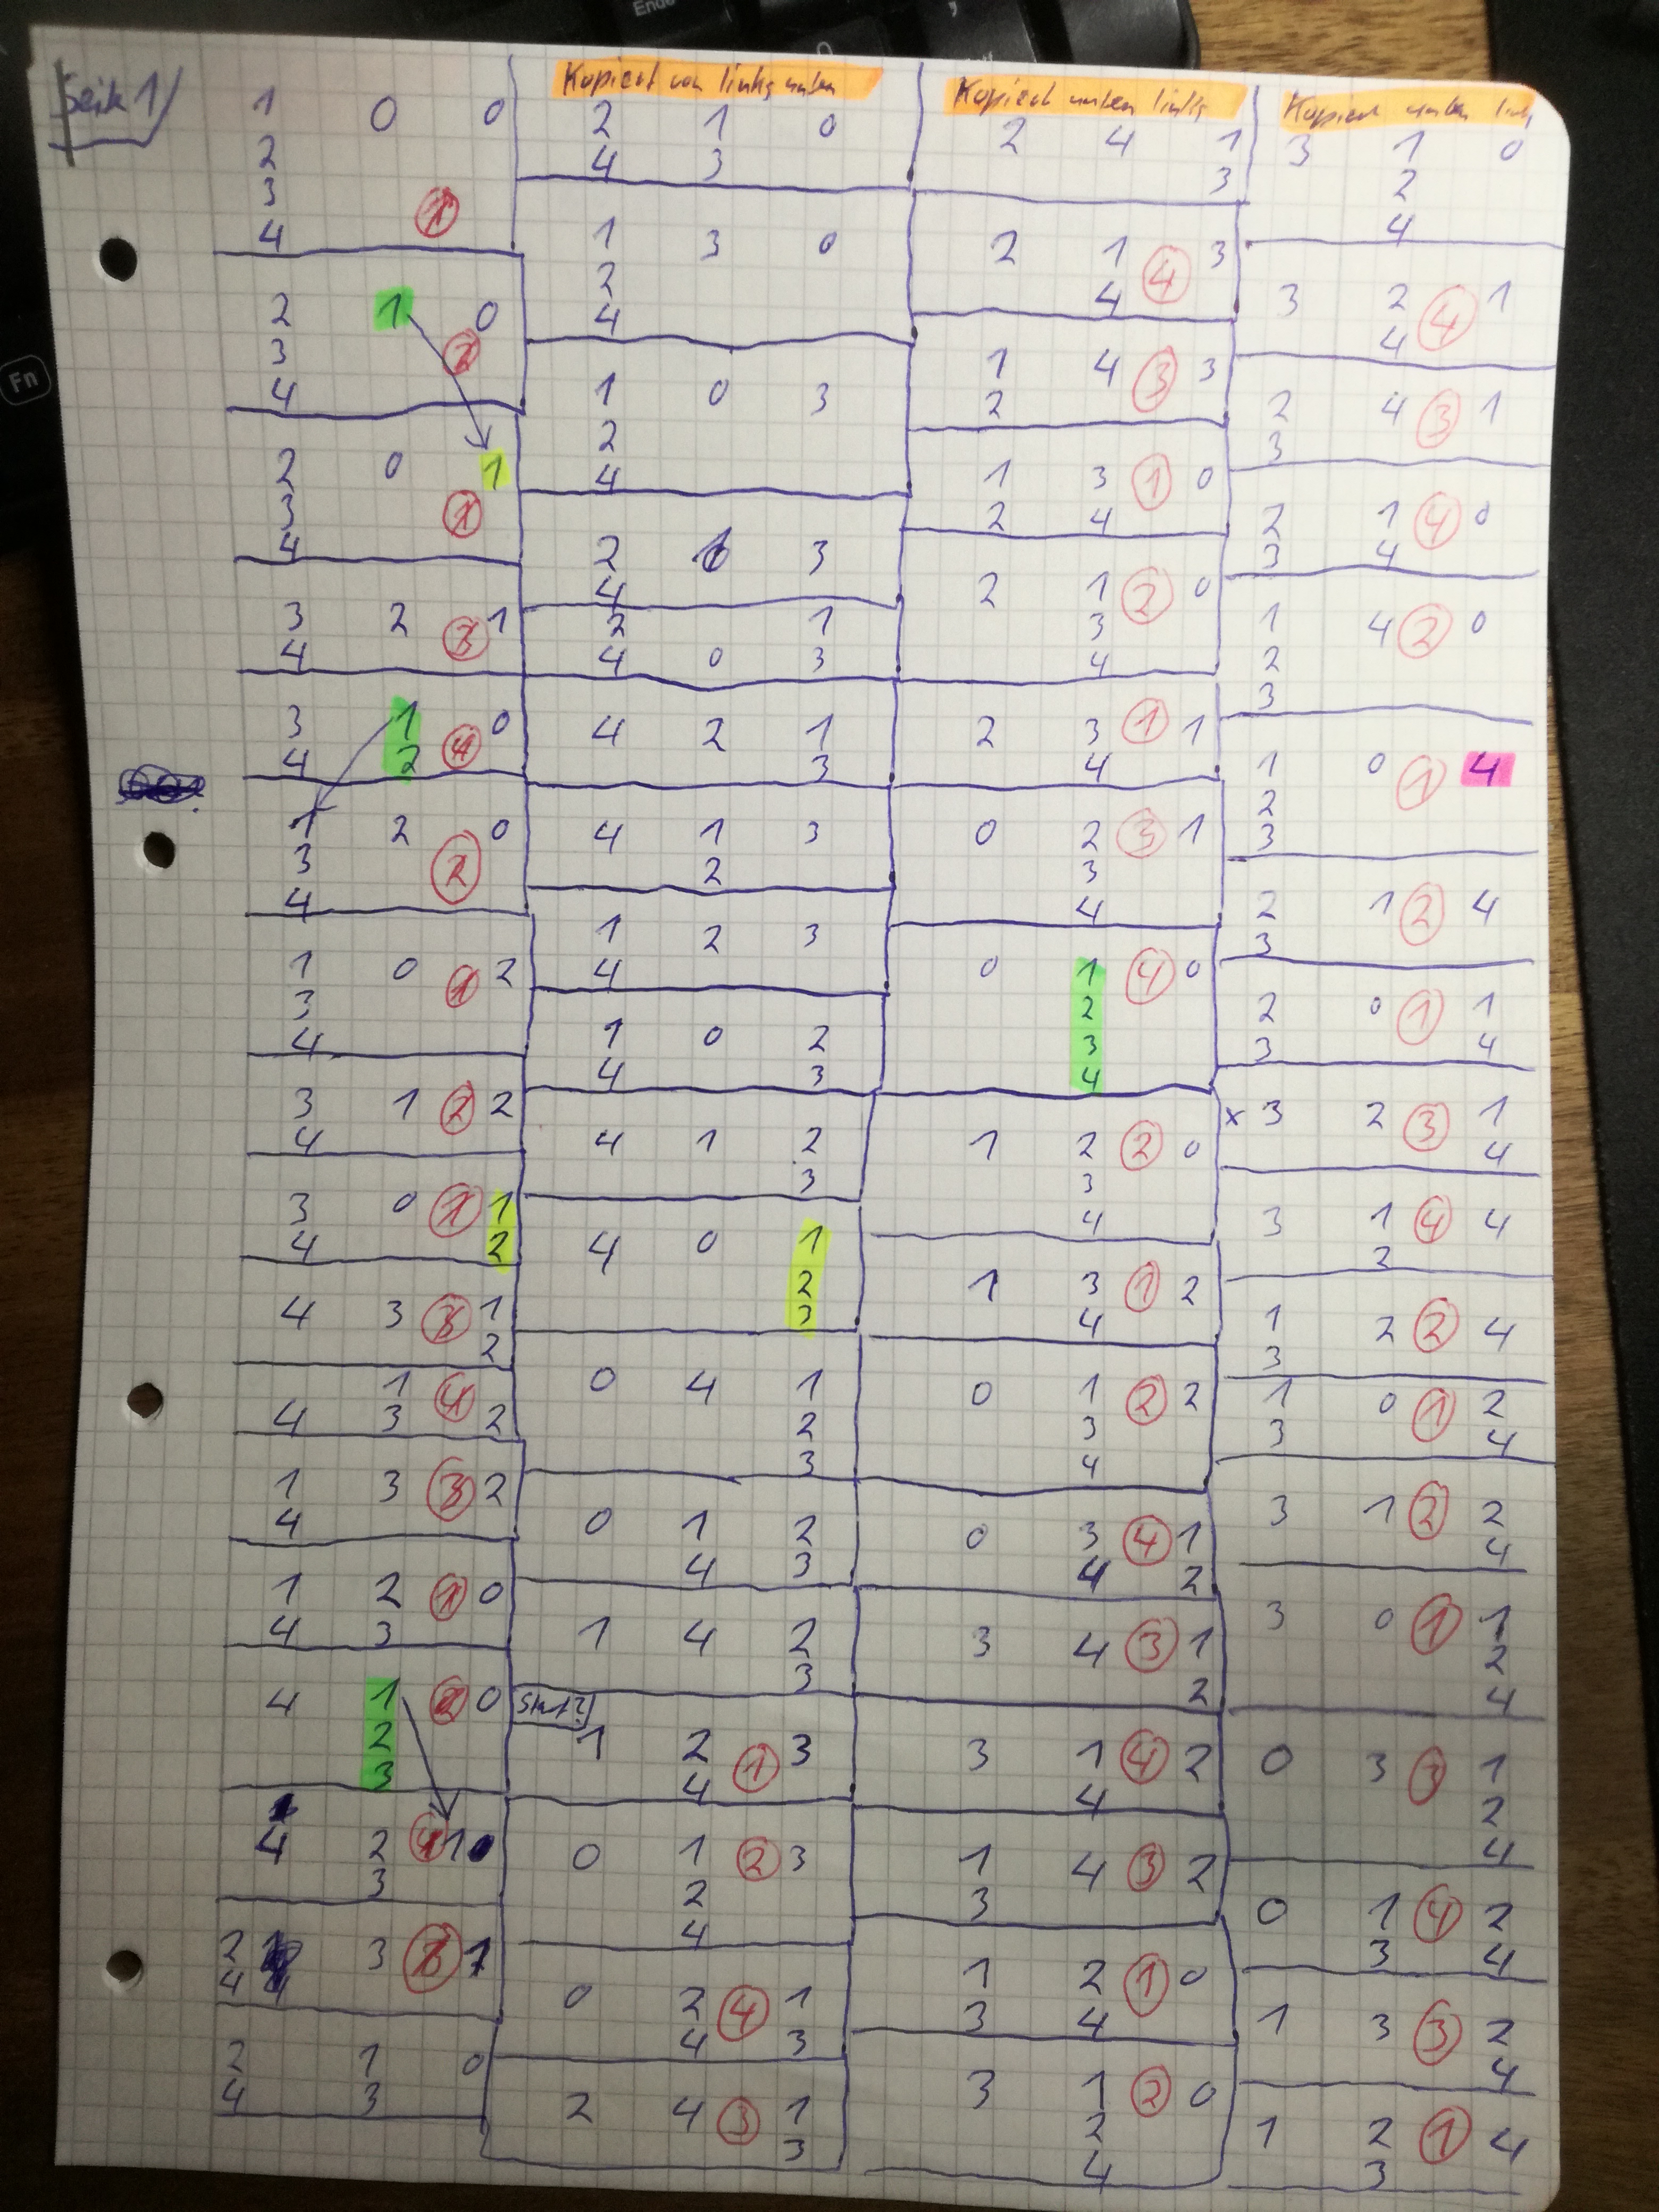 Ende
Fn
Seite 1
1 0 0
2
3
4 1
2 1 0
3 2
4
2 0 1
3 1
4
3 2 3 1
4
3 1 0
4 2 4
1 2 0
3 2
4
1 0 1 2
3
4
3 1 2 2
4
3 0 1 1
4 2
4 3 3 1
2
1 4
4 3 2
1 3 3 2
4
1 2 1 0
4 3
4 1 2 0
2
3
4 2 4 1
3
2 3 3 1
4
2 1 0
4 3
Kopiert von links unten
2 1 0
4 3
1 3 0
2
4
1 0 3
2
4
2 1 3
4
2 1
4 0 3
4 2 1
3
4 1 3
2
1 2 3
4
1 0 2
4 3
4 1 2
3
4 0 1
2
3
0 4 1
2
3
0 1 2
4 3
1 4 2
3
1 2 1 3
4
0 1 2 3
2
4
0 2 4 1
4 3
2 4 3 1
3
Kopiert unten links
2 4 1
3
2 1 4 3
4
1 4 3 3
2
1 3 1 0
2 4
2 1 2 0
3
4
2 3 1 1
4
0 2 3 1
3
4
0 1 4 0
2
3
4
1 2 2 0
3
4
1 3 1 2
4
0 1 2 2
3
4
0 3 4 1
4 2
3 4 3 1
2
3 1 4 2
4
1 4 3 2
3
1 2 1 0
3 4
3 1 2 0
2
4
Kopiert unten link
3 1 0
2
4
3 2 4 1
4
2 4 3 1
3
2 1 4 0
3 4
1 4 2 0
2
3
1 0 1 4
2
3
2 1 2 4
3
2 0 1 1
3 4
x 3 2 3 1
4
3 1 4 4
2
1 2 2 4
3
1 0 1 2
3 4
3 1 2 2
4
3 0 1 1
2
4
0 3 3 1
2
4
0 1 4 2
3 4
1 3 3 2
4
1 2 1 4
3